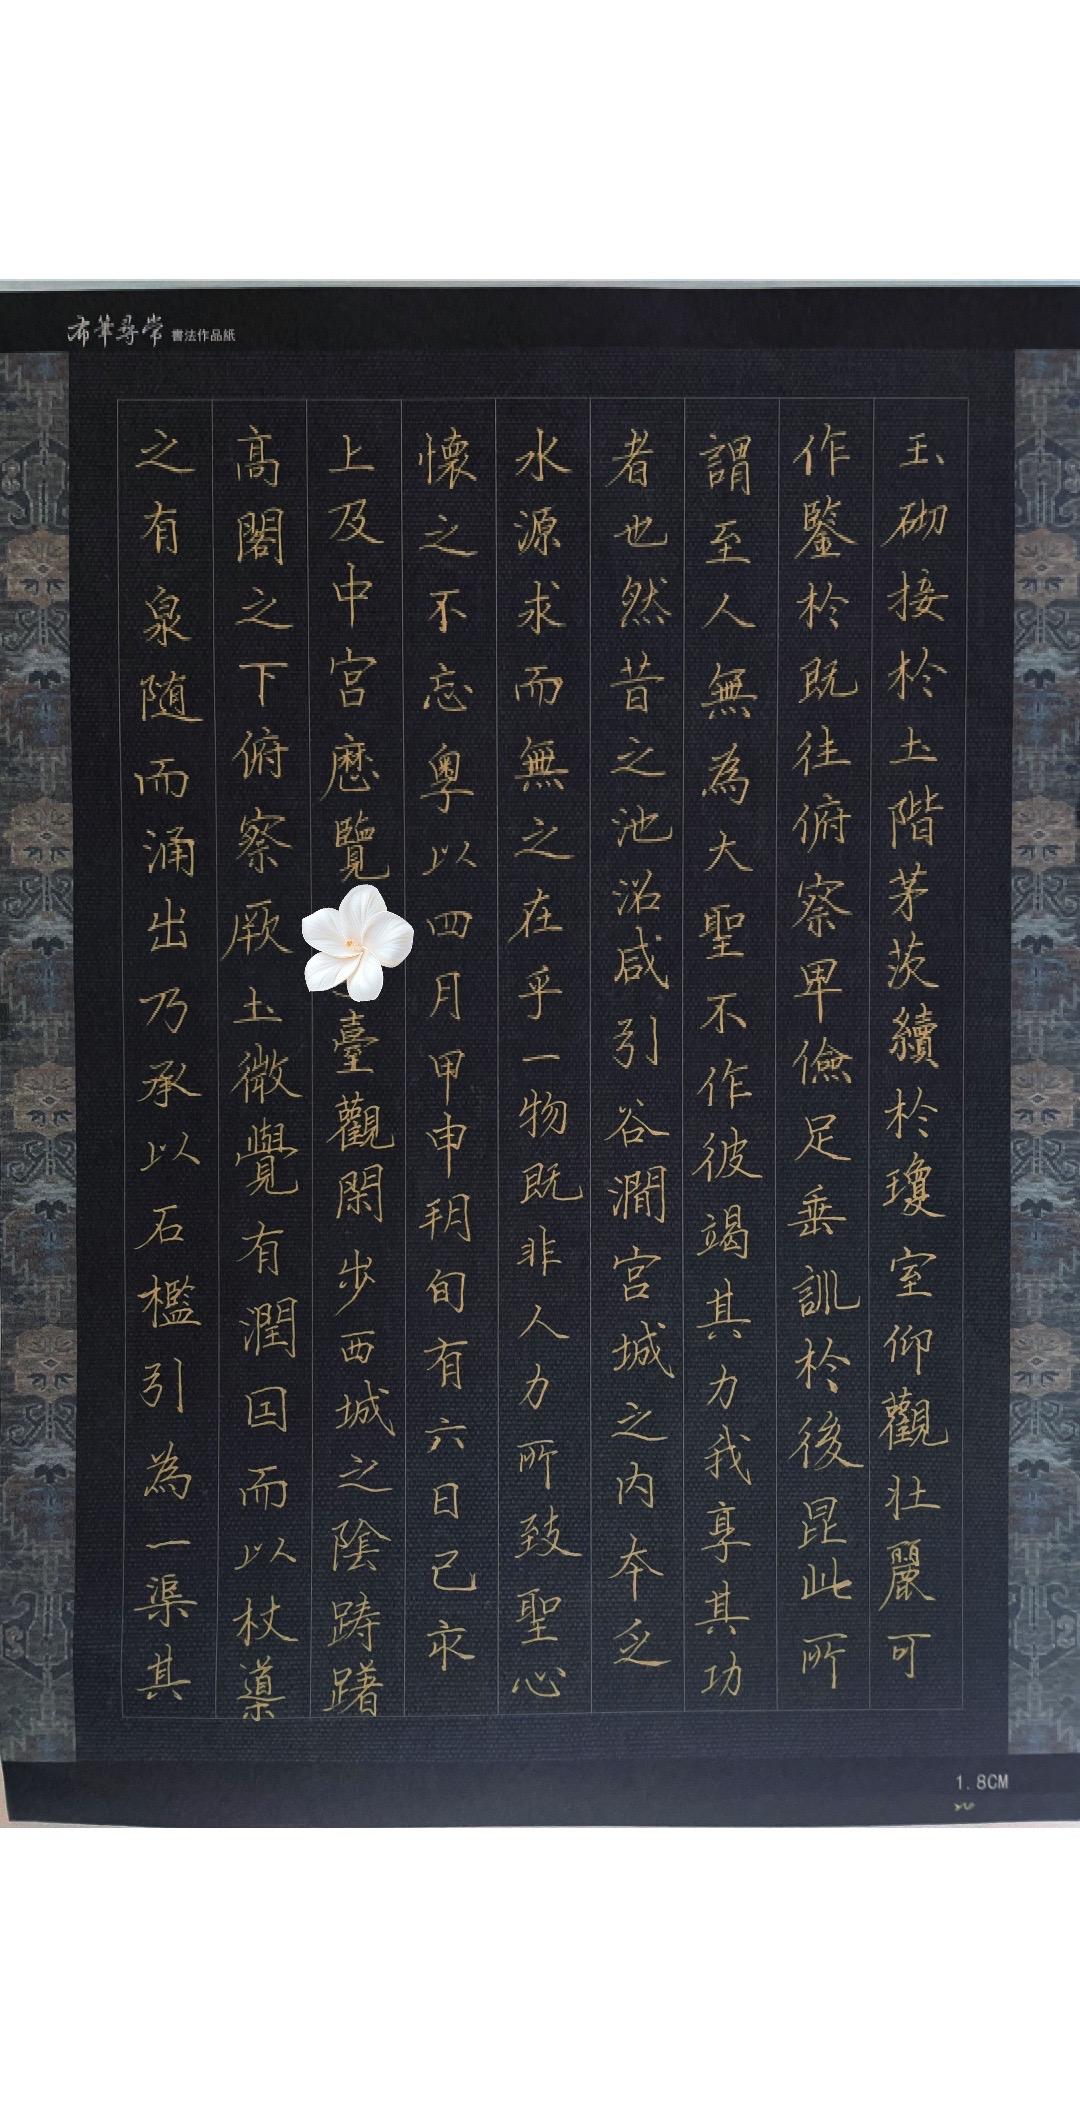 布筆尋常 書法作品紙
玉砌接於土階茅茨續於瓊室仰觀壯麗可
作鑒於既往俯察卑儉足垂訓於後昆此所
謂至人無為大聖不作彼竭其力我享其功
者也然昔之池沼咸引谷澗宮城之內本乏
水源求而無之在乎一物既非人力所致聖心
懷之不忘粵以四月甲申朔旬有六日己亥
上及中宮歷覽臺觀閑步西城之陰躊躇
高閣之下俯察厥土微覺有潤因而以杖導
之有泉隨而涌出乃承以石檻引為一渠其
1.8CM